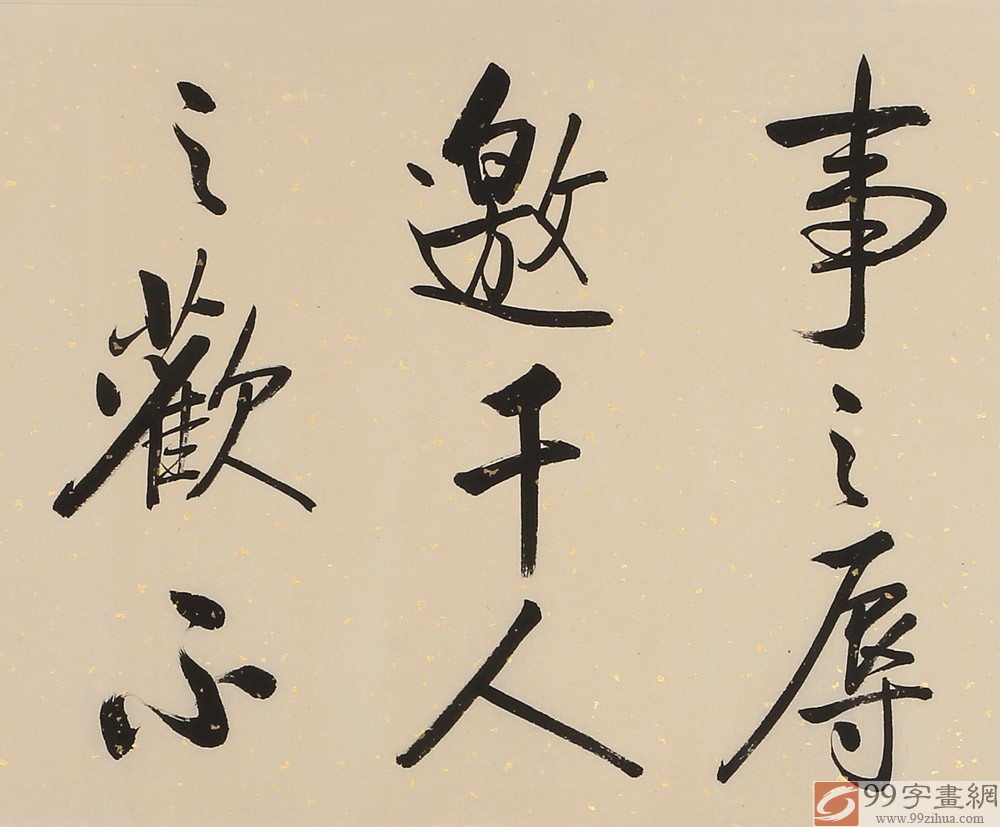 事之辱
邀千人
之歡不
99字畫網
www.99zihua.com